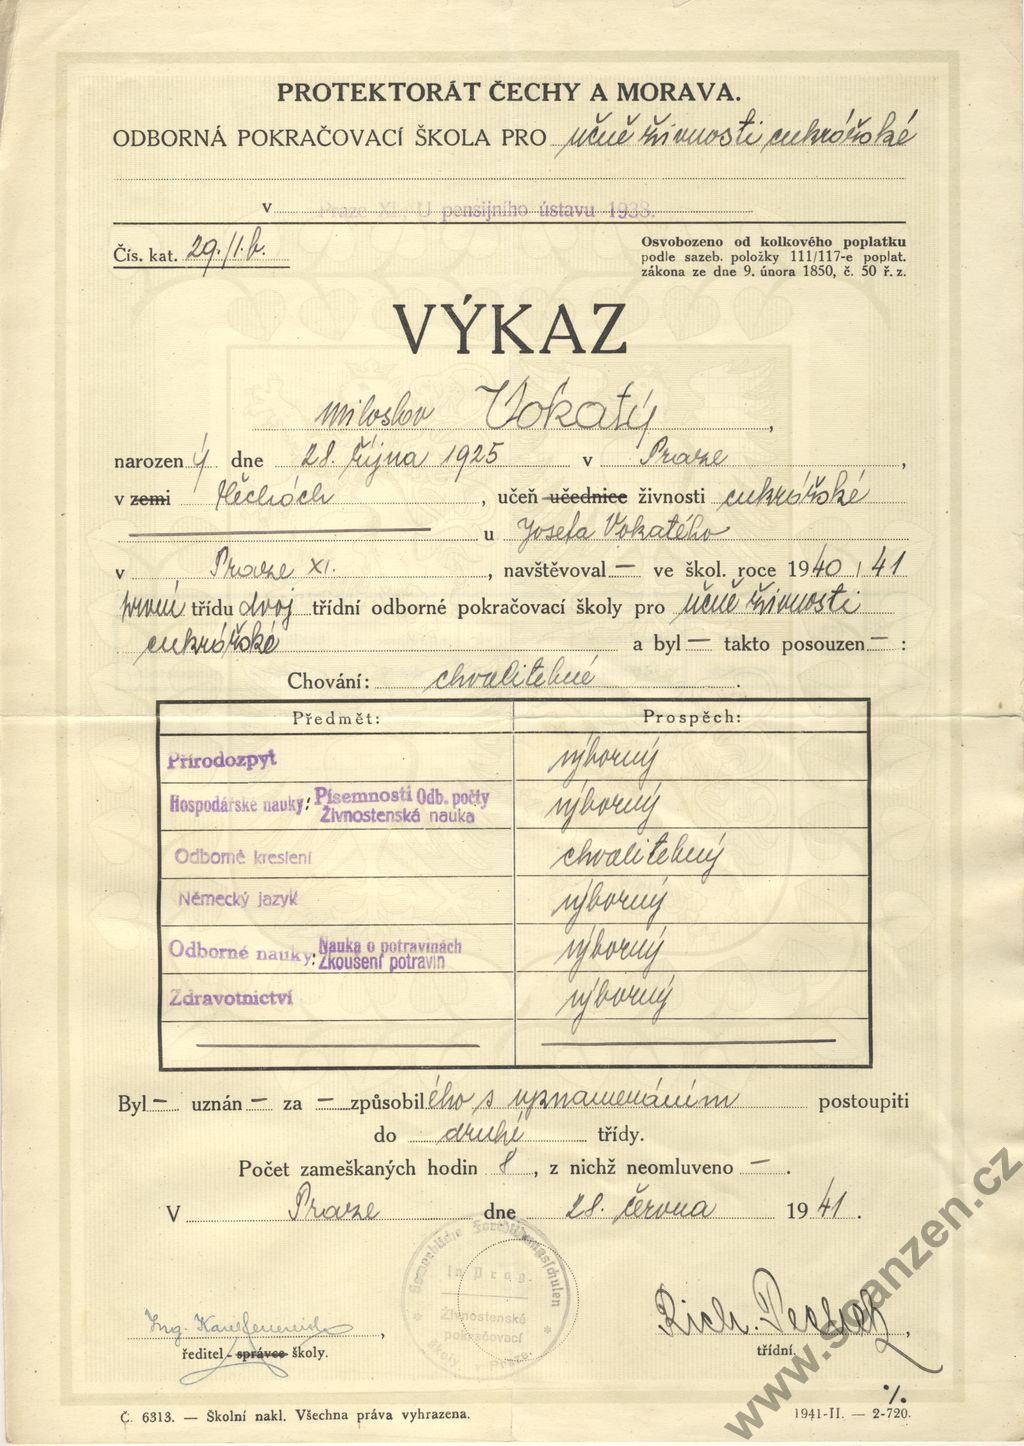 PROTEKTORÁT ČECHY A MORAVA.
ODBORNÁ POKRAČOVACÍ ŠKOLA PRO učně živnosti cukrářské
v Praze XI. U pensijního ústavu 1938.
Čís. kat. 29./I.b.
Osvobozeno od kolkového poplatku
podle sazeb. položky 111/117-e poplat.
zákona ze dne 9. února 1850, č. 50 ř. z.
VÝKAZ
Miloslav Vokatý,
narozen ý dne 28. října 1925 v Praze,
v zemi Čechách, učeň učednice živnosti cukrářské
u Josefa Vokatého
v Praze XI., navštěvoval — ve škol. roce 1940/41
první třídu dvoj třídní odborné pokračovací školy pro učně živnosti
cukrářské a byl — takto posouzen — :
Chování: chvalitebné.
Předmět: Prospěch:
Přírodozpyt výborný
Hospodářské nauky: Písemnosti Odb. počty výborný
Živnostenská nauka
Odborné kreslení chvalitebný
Německý jazyk výborný
Odborné nauky: Nauka o potravinách výborný
Zkoušení potravin
Zdravotnictví výborný
Byl — uznán — za — způsobilého s vyznamenáním postoupiti
do druhé třídy.
Počet zameškaných hodin 8, z nichž neomluveno — .
V Praze dne 28. června 1941.
Gewerbliche Fortbildungsschulen
in Prag.
Živnostenské
pokračovací
školy Praze.
Ing.
Rich.
ředitel - správce školy.
třídní.
Č. 6313. — Školní nakl. Všechna práva vyhrazena.
1941-II. — 2-720.
www.scanzen.cz